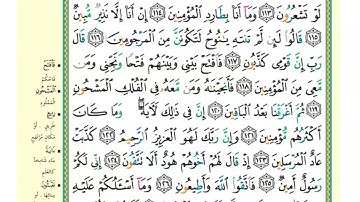 لَوْ تَشْعُرُونَ ١١٣ وَمَا أَنَا۠ بِطَارِدِ ٱلْمُؤْمِنِينَ ١١٤ إِنْ أَنَا۠ إِلَّا نَذِيرٌ مُّبِينٌ
١١٥ قَالُوا۟ لَئِن لَّمْ تَنتَهِ يَـٰنُوحُ لَتَكُونَنَّ مِنَ ٱلْمَرْجُومِينَ ١١٦ قَالَ
رَبِّ إِنَّ قَوْمِى كَذَّبُونِ ١١٧ فَٱفْتَحْ بَيْنِى وَبَيْنَهُمْ فَتْحًا وَنَجِّنِى وَمَن
مَّعِىَ مِنَ ٱلْمُؤْمِنِينَ ١١٨ فَأَنجَيْنَـٰهُ وَمَن مَّعَهُۥ فِى ٱلْفُلْكِ ٱلْمَشْحُونِ
١١٩ ثُمَّ أَغْرَقْنَا بَعْدُ ٱلْبَاقِينَ ١٢٠ إِنَّ فِى ذَٰلِكَ لَـَٔايَةً ۖ وَمَا كَانَ
أَكْثَرُهُم مُّؤْمِنِينَ ١٢١ وَإِنَّ رَبَّكَ لَهُوَ ٱلْعَزِيزُ ٱلرَّحِيمُ ١٢٢ كَذَّبَتْ
عَادٌ ٱلْمُرْسَلِينَ ١٢٣ إِذْ قَالَ لَهُمْ أَخُوهُمْ هُودٌ أَلَا تَتَّقُونَ ١٢٤ إِنِّى لَكُمْ
رَسُولٌ أَمِينٌ ١٢٥ فَٱتَّقُوا۟ ٱللَّهَ وَأَطِيعُونِ ١٢٦ وَمَآ أَسْـَٔلُكُمْ عَلَيْهِ
فَافْتَحْ
فاحكم
الْمَشْحُونِ
المملوء